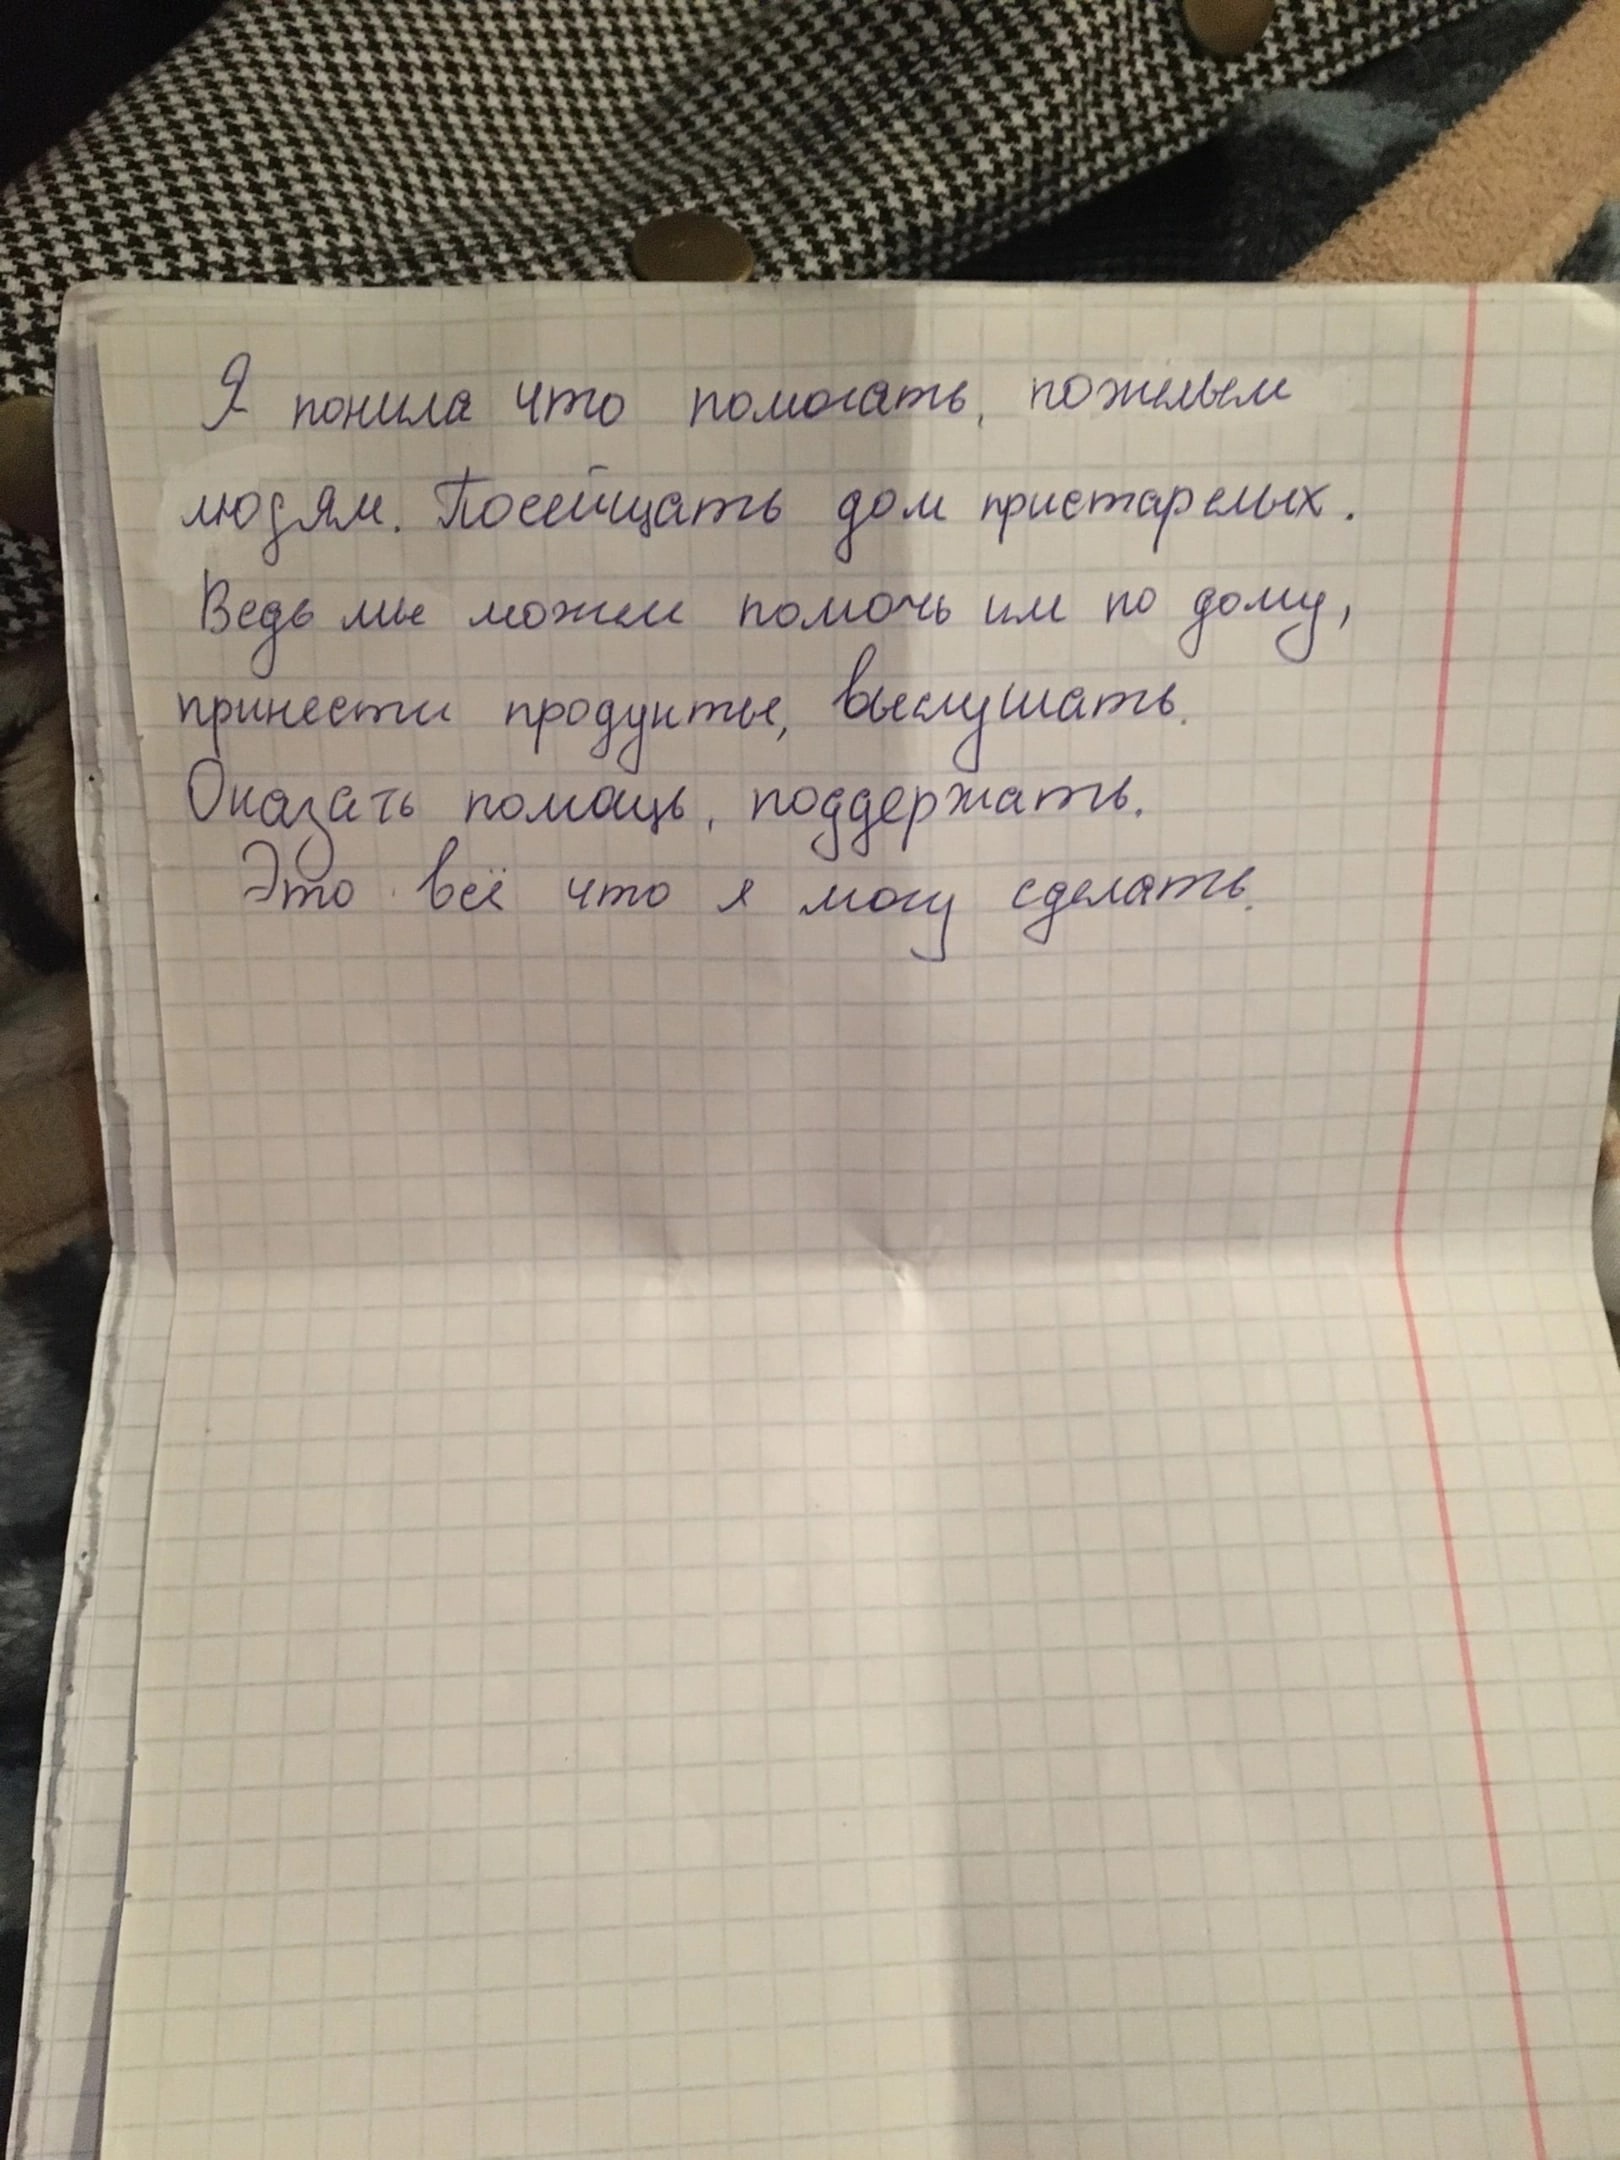 Я понила что помогать, пожилым
людям. Посейщать дом пристарелых.
Ведь мы можем помочь им по дому,
принести продукты, выслушать.
Оказать помощь, поддержать.
Это всё что я могу сделать.